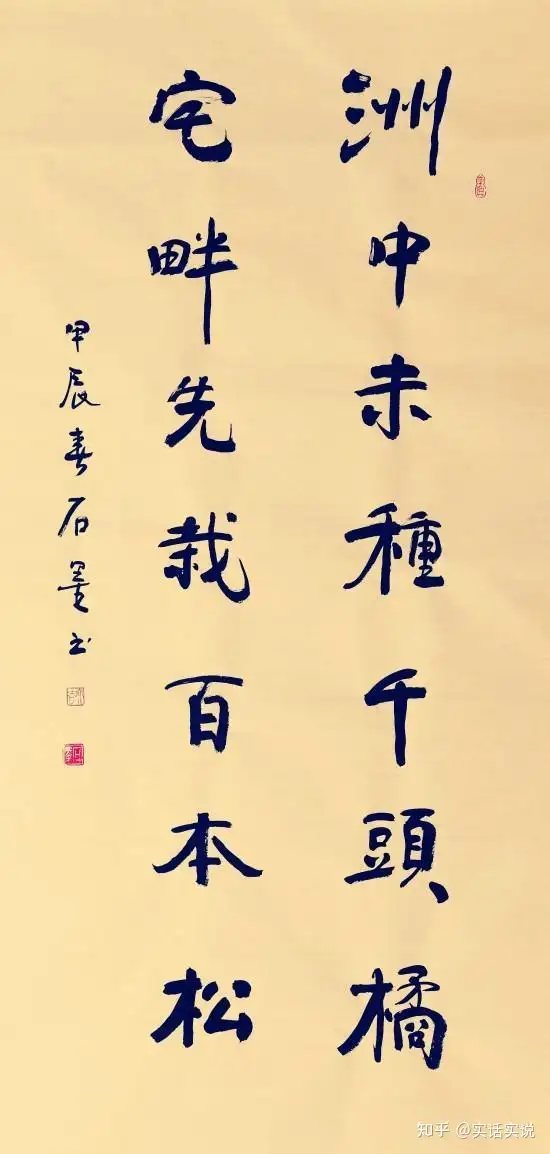 洲中未種千頭橘
宅畔先栽百本松
甲辰春石墨书
知乎 @实话实说